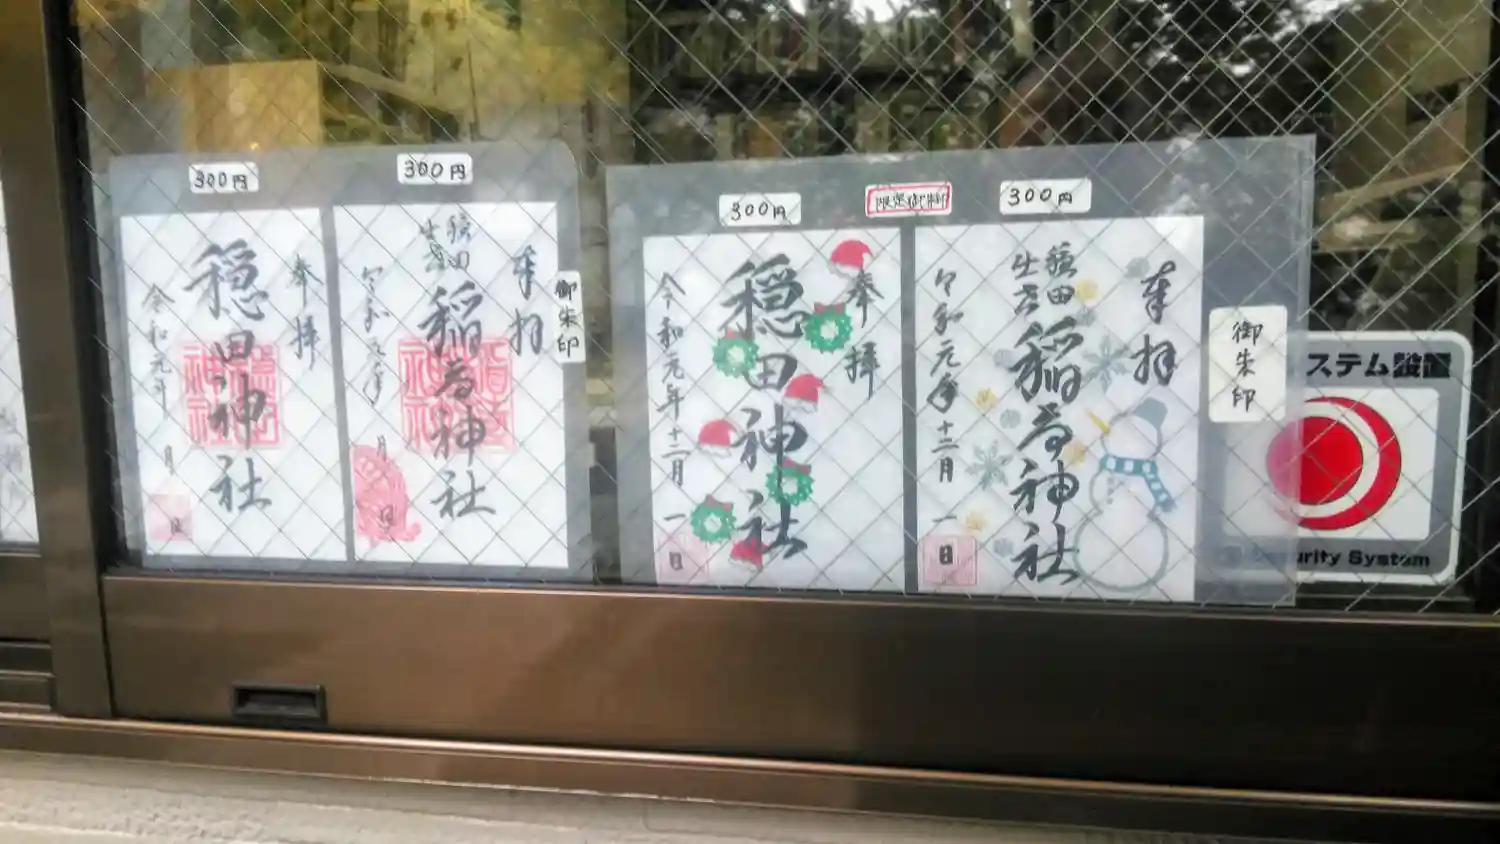 300円
奉拝
穏田神社
令和元年
月
日
300円
奉拝
穏田
生き
稲荷神社
令和元年
月
日
御朱印
300円
奉拝
穏田神社
令和元年十二月一日
限定御朱印
300円
奉拝
穏田
稲荷神社
令和元年十二月一日
御朱印
ステム設置
urity System